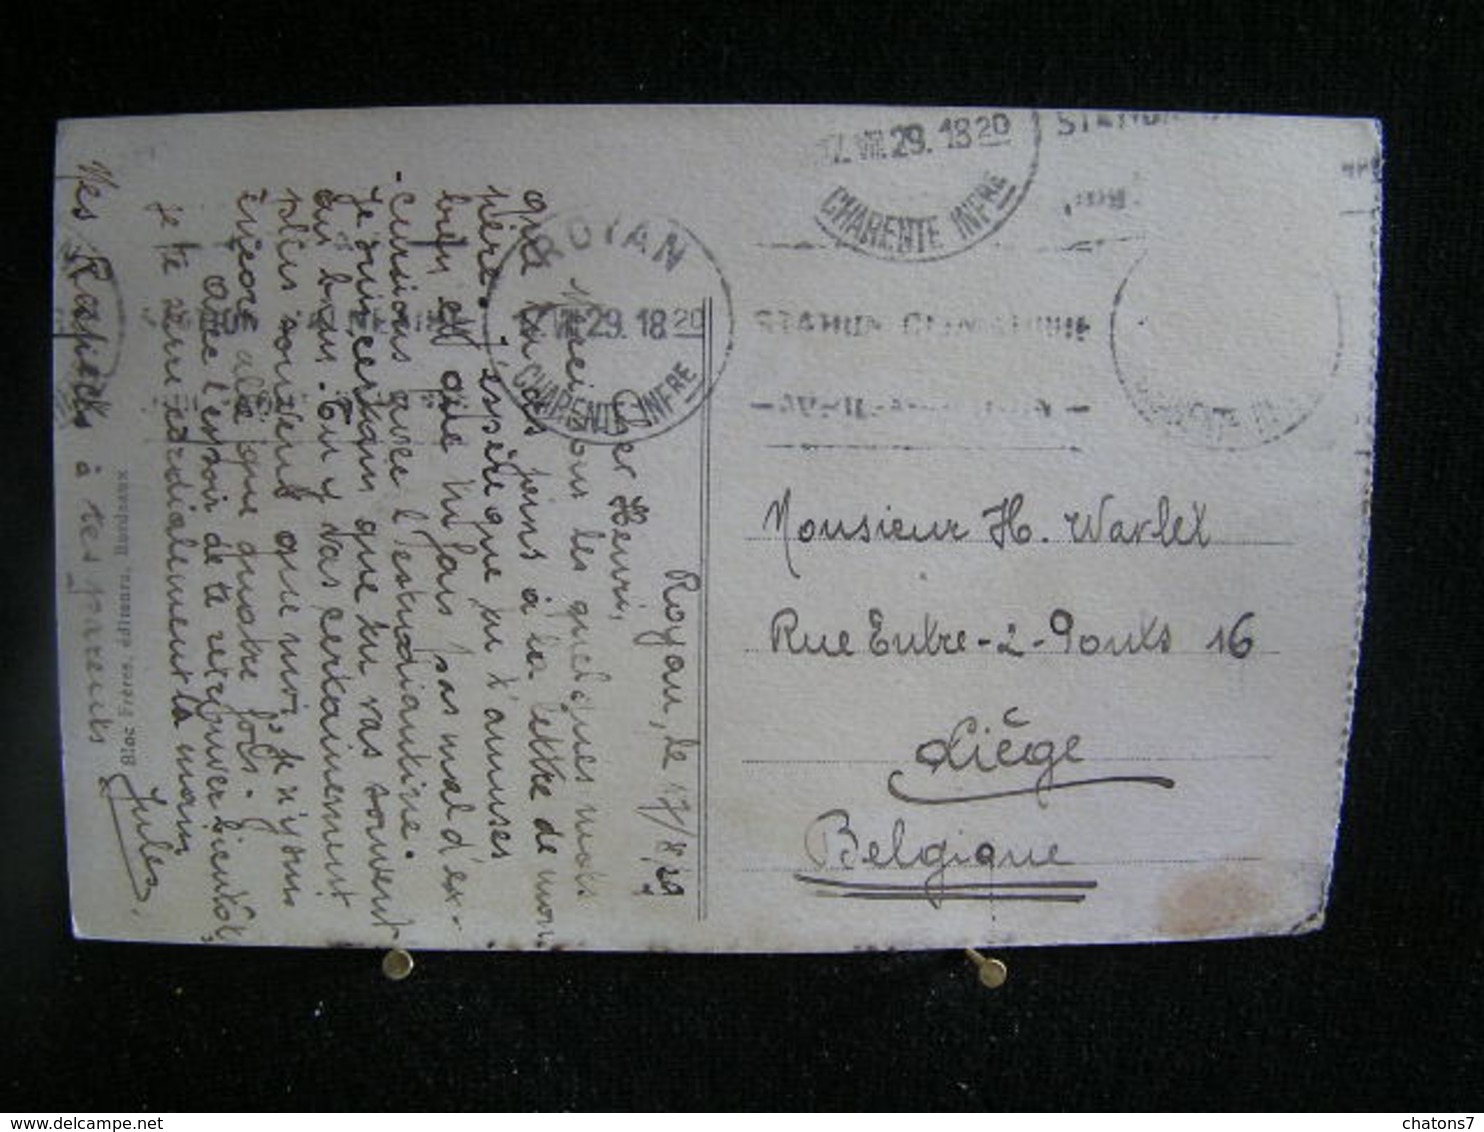 Royan, le 17/8/29
Cher Henri,
Voici tous les quelques mots
que tu des joins à la lettre de mon
père. J'espère que tu t'amuses
bien et que tu fais pas mal d'ex-
cursions avec l'estudiantine.
Je suis certain que tu vas souvent
au bain. Tu y vas certainement
plus souvent que moi, je n'y suis
encore allé que quatre fois.
Avec l'espoir de te retrouver bientôt,
je te serre cordialement la main
Jules.
Mes Respects à tes parents
Bloc Frères, éditeurs, Bordeaux
ROYAN
VIII 29. 18 20
CHARENTE INFRE
17. VIII. 29. 18 20
CHARENTE INFRE
STATION
STATION CLIMATIQUE
Monsieur H. Warlet
Rue Entre-2-Ponts 16
Liège
Belgique
delcampe.net
chatons7